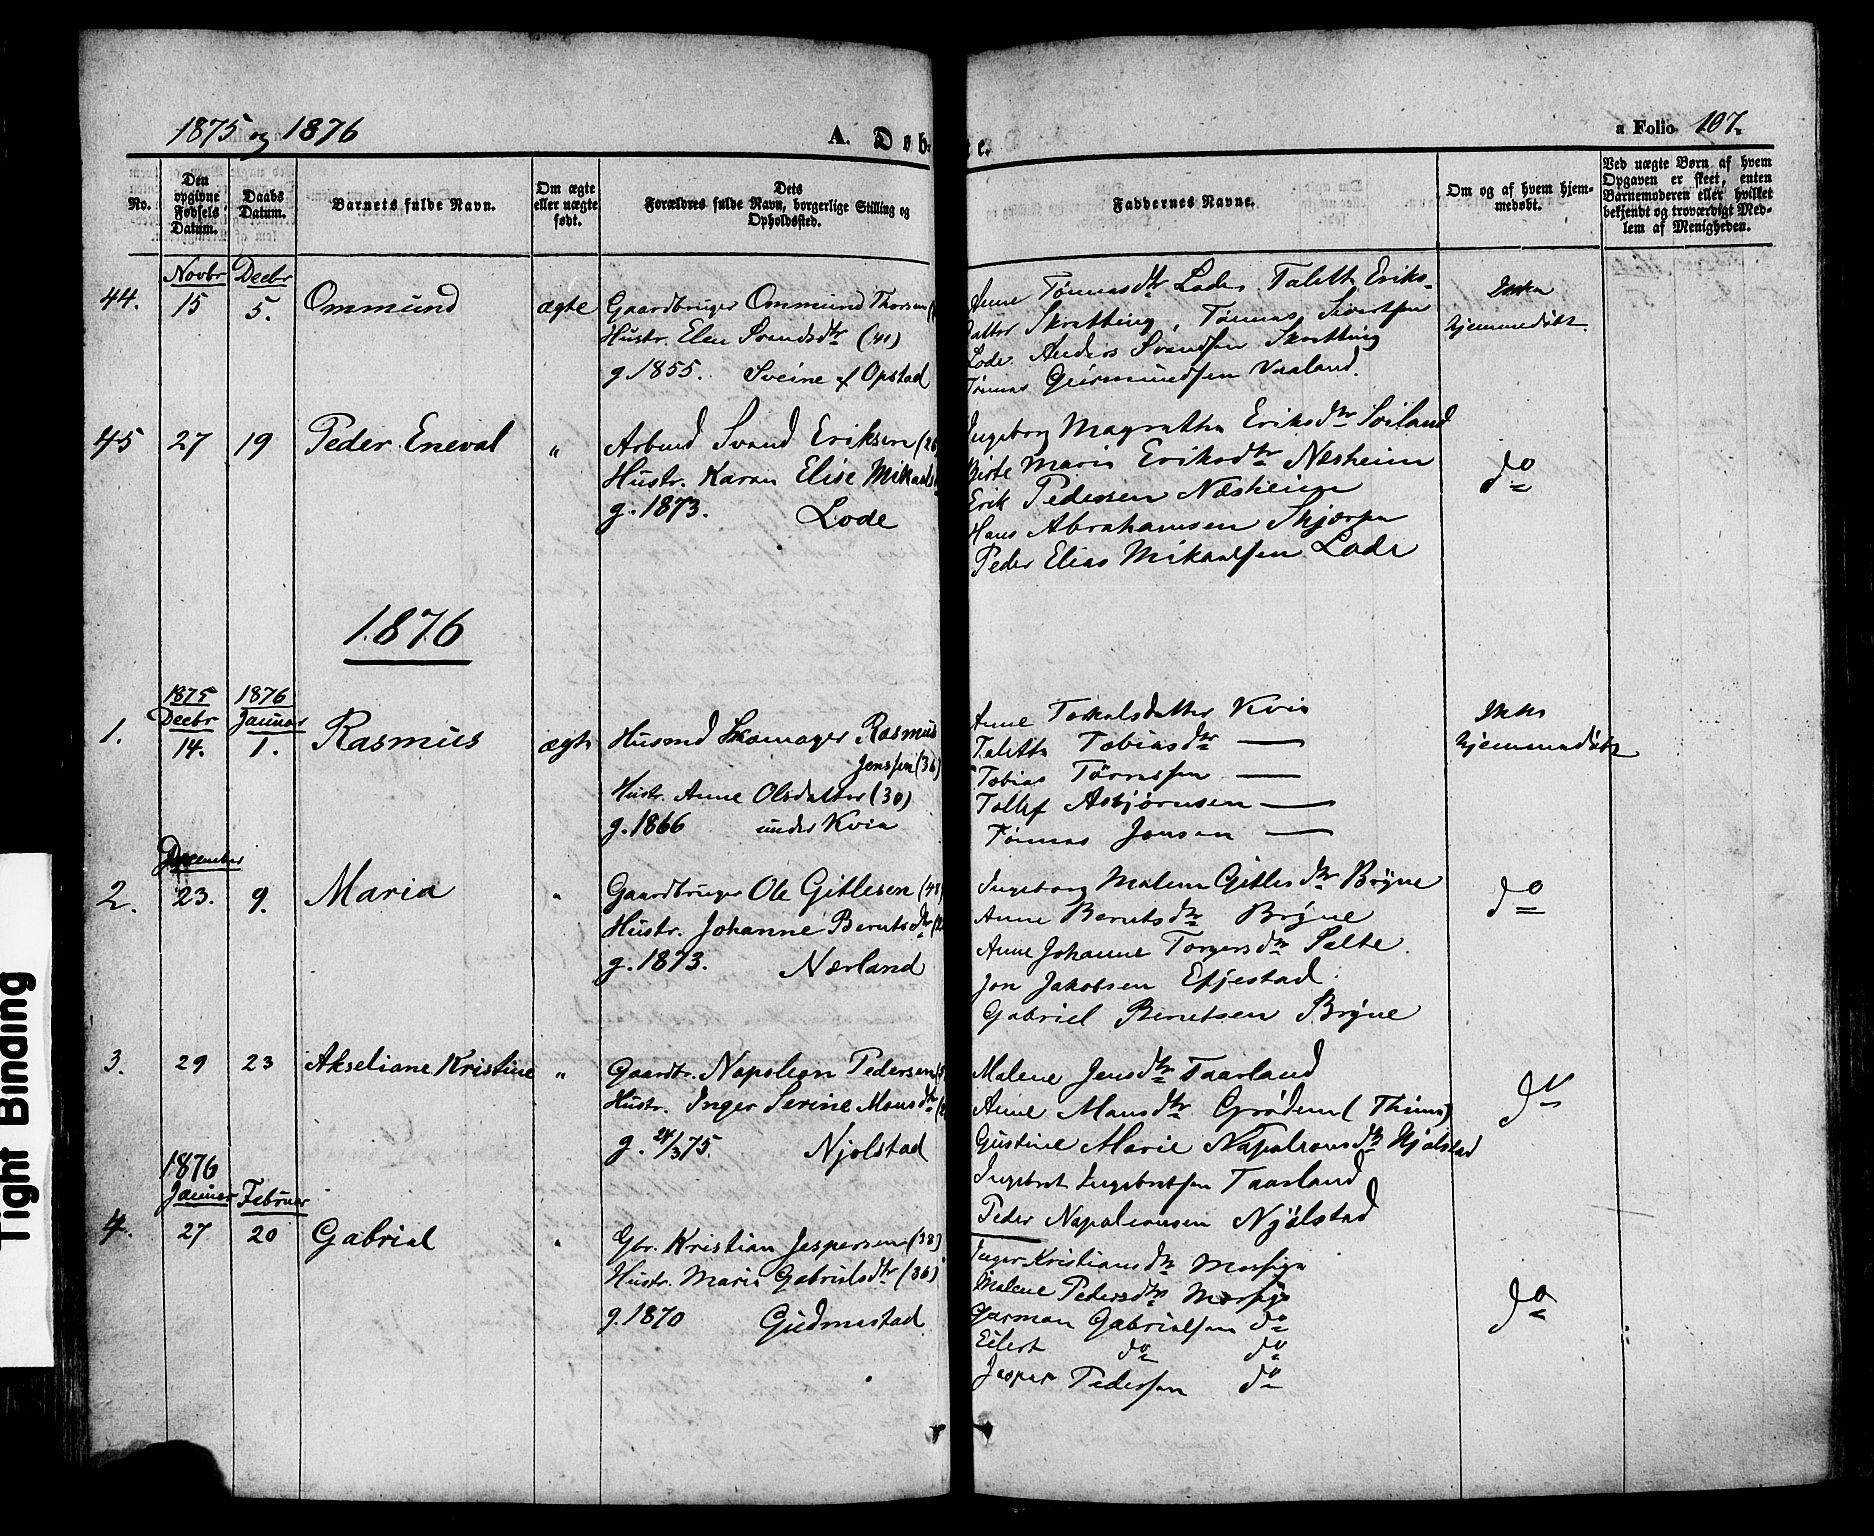 1875 og 1876
A. Døb-
e.
a Folio 107.
No.
Den opgivne Fødsels Datum.
Daabs Datum.
Barnets fulde Navn.
Om ægte eller uægte født.
Dets Forældres fulde Navn, borgerlige Stilling og Opholdssted.
Faddernes Navne.
Om og af hvem hjemmedøbt.
Ved uægte Børn af hvem Opgaven er skeet, enten Barnemoderen eller hvilket bekjendt og troværdigt Medlem af Menigheden.
Novbr Decbr
44. 15 5. Ommund ægte
Gaardbruger Ommund Thorsen
Hustr. Elen Svendsdtr (41)
g. 1855. Sveine af Opstad
Anne Tønnasdtr Lode. Taletta Eriks-
datter Skretting, Tønnas Sivertsen
Lode. Anders Svendsen Skretting
Tønnas Geirmundsen Vaaland.
Ikke
hjemmedøbt.
45 27 19 Peder Eneval "
Arbeid Svend Eriksen
Hustr. Karen Elise Mikaels
g. 1873. Lode
Ingeborg Magretha Eriksdtr Soiland
Birte Marie Eriksdtr Næsheim
Erik Pedersen Næsheim
Hans Abrahamsen Skjærpe
Peder Elias Mikaelsen Lode
do
1876
1875 1876
Decbr Januar
1. 14. 1. Rasmus ægte
Husmd Skomager Rasmus
Jenssen (36)
Hustr. Anne Olsdatter (30)
g. 1866 under Kvia
Anne Torkelsdatter Kvia
Taletta Tobiasdtr —
Tobias Tørressen —
Tollef Asbjørnsen —
Tønnas Jonsen —
Ikke
hjemmedøbt
December
2. 23. 9. Maria "
Gaardbruger Ole Gitlesen
Hustr. Johanne Berntsdtr
g. 1873. Nærland
Ingeborg Malene Gitlesdtr Bryne
Anne Berntsdtr Bryne
Anne Johanne Torgersdtr Salte
Jon Jakobsen Efjestad
Gabriel Berntsen Bryne
do
3. 29 23 Akseliane Kristine "
Gaardbr. Napoleon Pedersen
Hustr. Inger Serine Monsdtr
g. 24/3 75. Njolstad
Malene Jensdtr Taarland
Anne Monsdtr Grødem (Thime)
Gustine Marie Napoleonsdtr Njølstad
Ingebret Ingebretsen Taarland
Peder Napoleonsen Njølstad
do
1876
Januar Februar
4. 27 20 Gabriel "
Gbr. Kristian Jespersen (38)
Hustr. Marie Gabrielsdtr (36)
g. 1870 Gudmestad
Inger Kristiansdtr Motsige
Malene Pedersdtr Motsige
Garman Gabrielsen do
Eilert do do
Jesper Pedersen do
do
Tight Binding